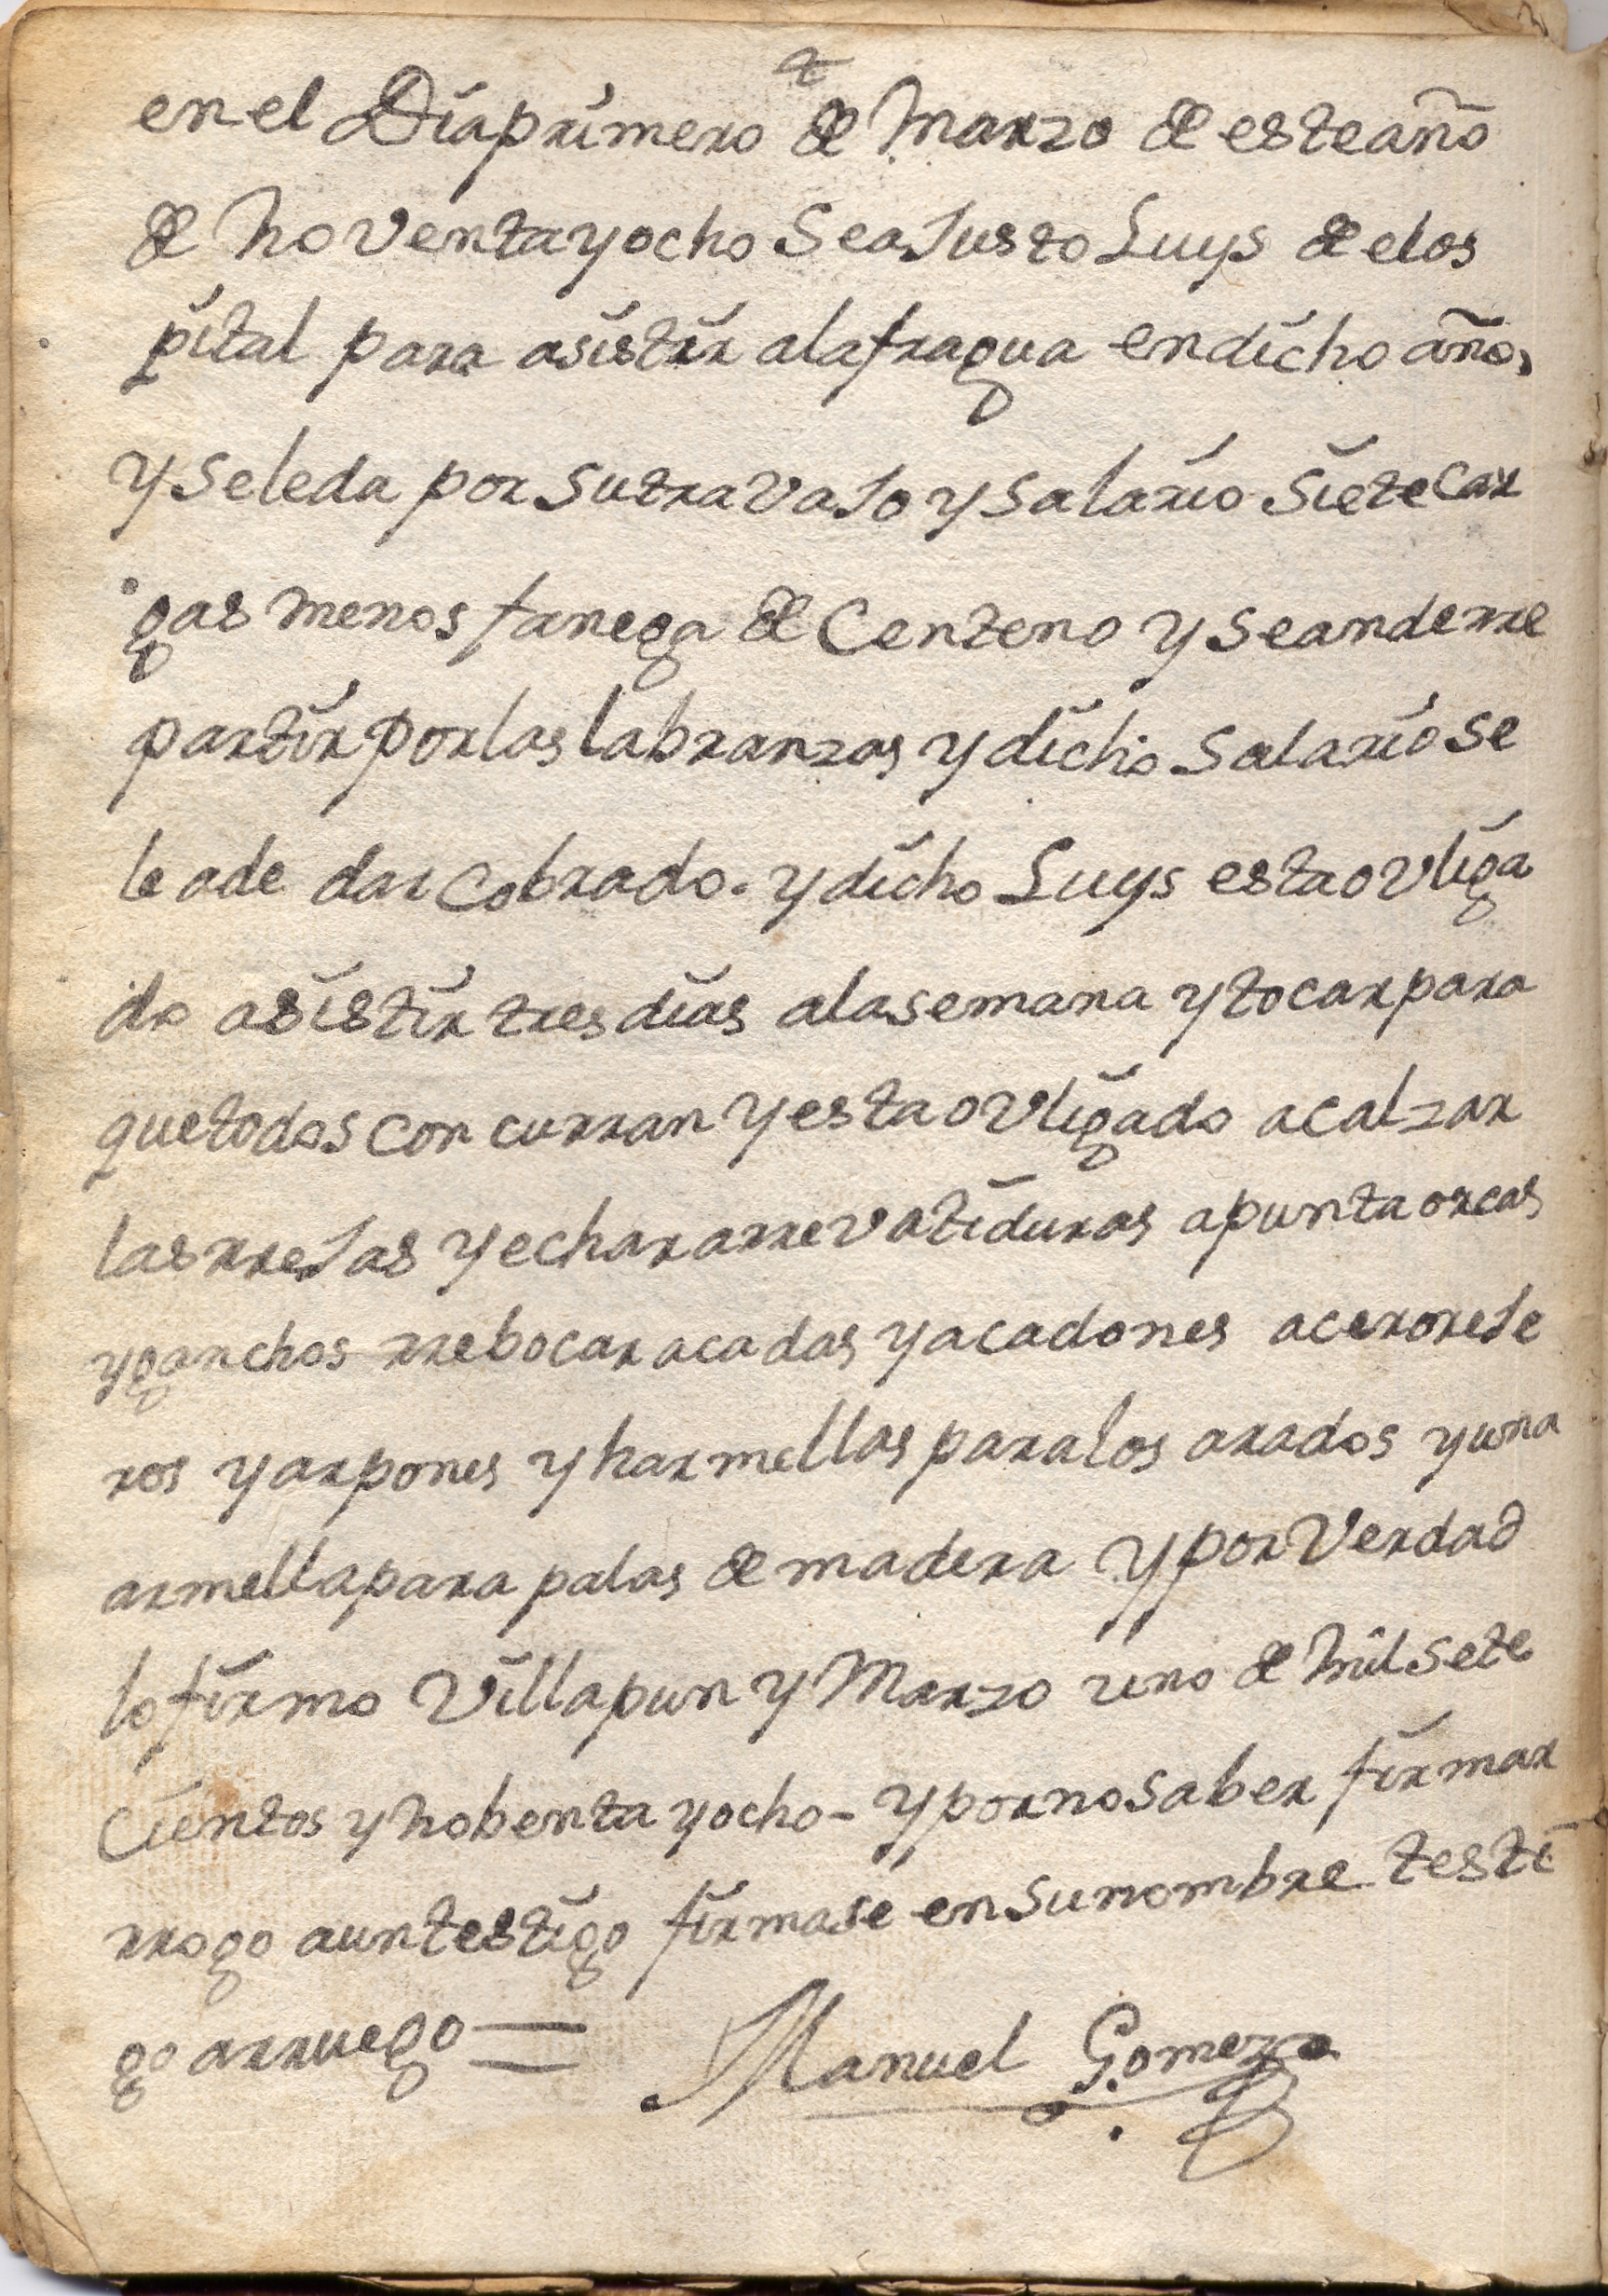 en el Dia primero de Marzo de este año
de Noventa y ocho Se aJusto Luys de elos
pital para asistir a la fragua en dicho año,
y se le da por su travaJo y Salario Siete Car
gas menos fanega de Centeno y se an de rre
partir por las labranzas y dicho Salario se
le a de dar Cobrado. y dicho Luys esta ovliga
do asistir tres dias a la semana y tocar para
que todos Concurran y esta ovligado a calzar
las rreJas y echar arrevatiduras a punta orcas
y ganchos rrebocar acadas y acadones acer oreJe
ros y arpones y harmellas para los arados y una
armella para palas de madera y por Verdad
lo firmo Villapun y Marzo uno de Mil Sete
Cientos y Nobenta y ocho - y por no saber firmar
rrogo a un testigo firmase en su nombre testi
go arruego = Manuel Gomez